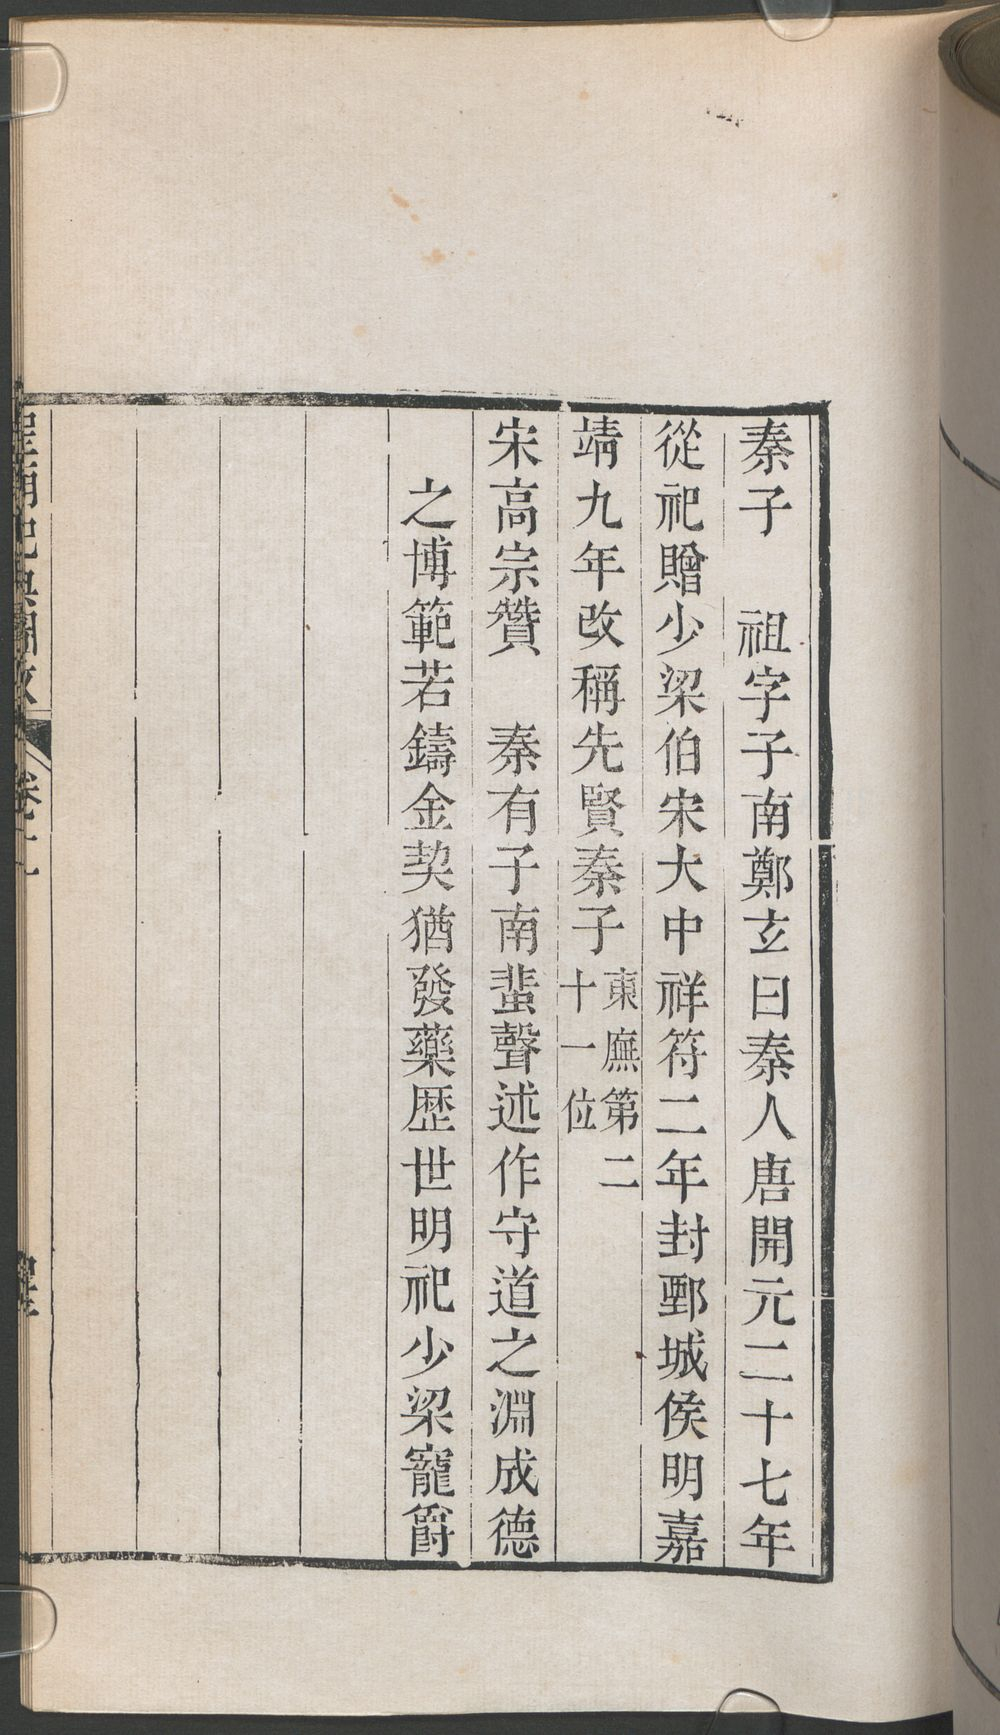 秦子　祖字子南鄭玄曰秦人唐開元二十七年
從祀贈少梁伯宋大中祥符二年封鄄城侯明嘉
靖九年改稱先賢秦子東廡第二十一位
宋高宗贊　秦有子南蜚聲述作守道之淵成德
之博範若鑄金契猶發藥歷世明祀少梁寵爵